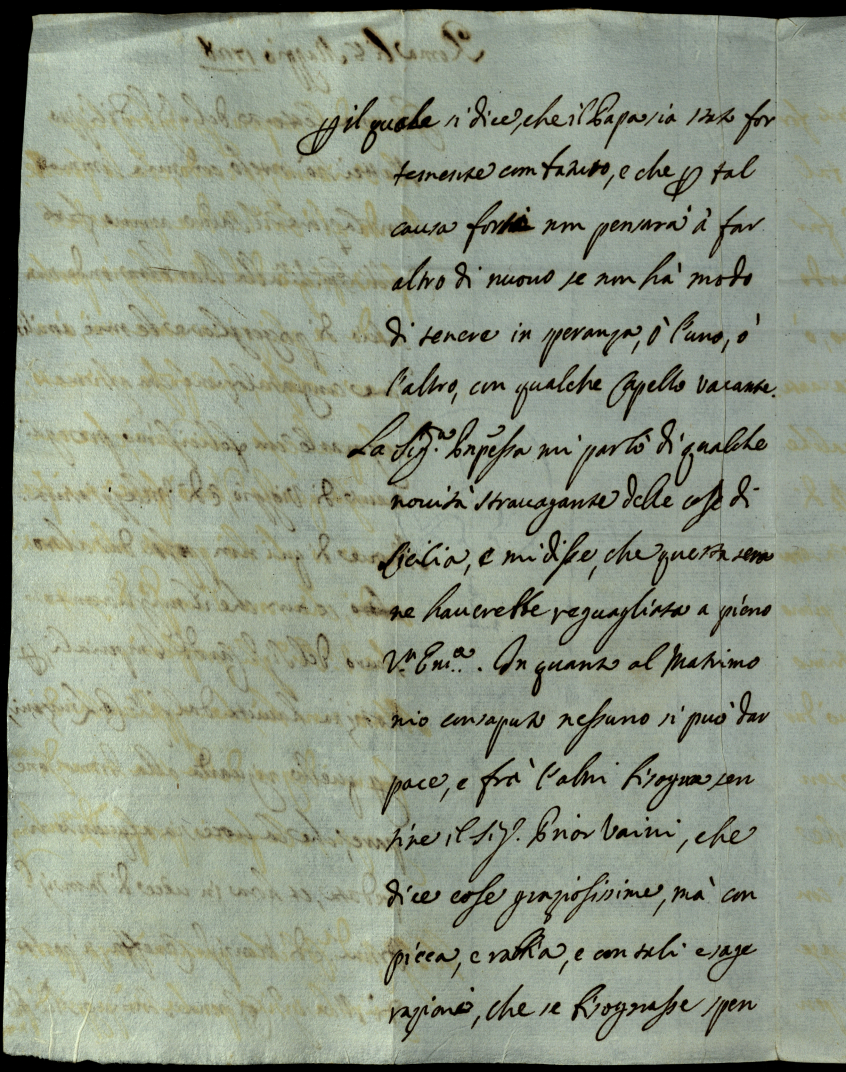 ꝑ il quale si dice, che il Papa sia stato for
temente com battuto, e che ꝑ tal
causa forsi non pensarà à far
altro di nuouo se non hà modo
di tenere in speranza, ò l'uno, ò
l'altro, con qualche Capello vacante.
La Sig.ra Enpessa mi parlò di qualche
nouità strauagante delle cose di
Sicilia, e mi disse, che questa sera
ne hauerebbe reguagliata a pieno
V.ra Em.a. In quanto al Matrimo
nio consaputo nessuno si può dar
pace, e frà l'altri bisogna sen
tire il Sig.r Prior Vaini, che
dice cose graziosissime, mà con
picca, e rabbia, e con tali esage
razioni, che se bisognasse spen